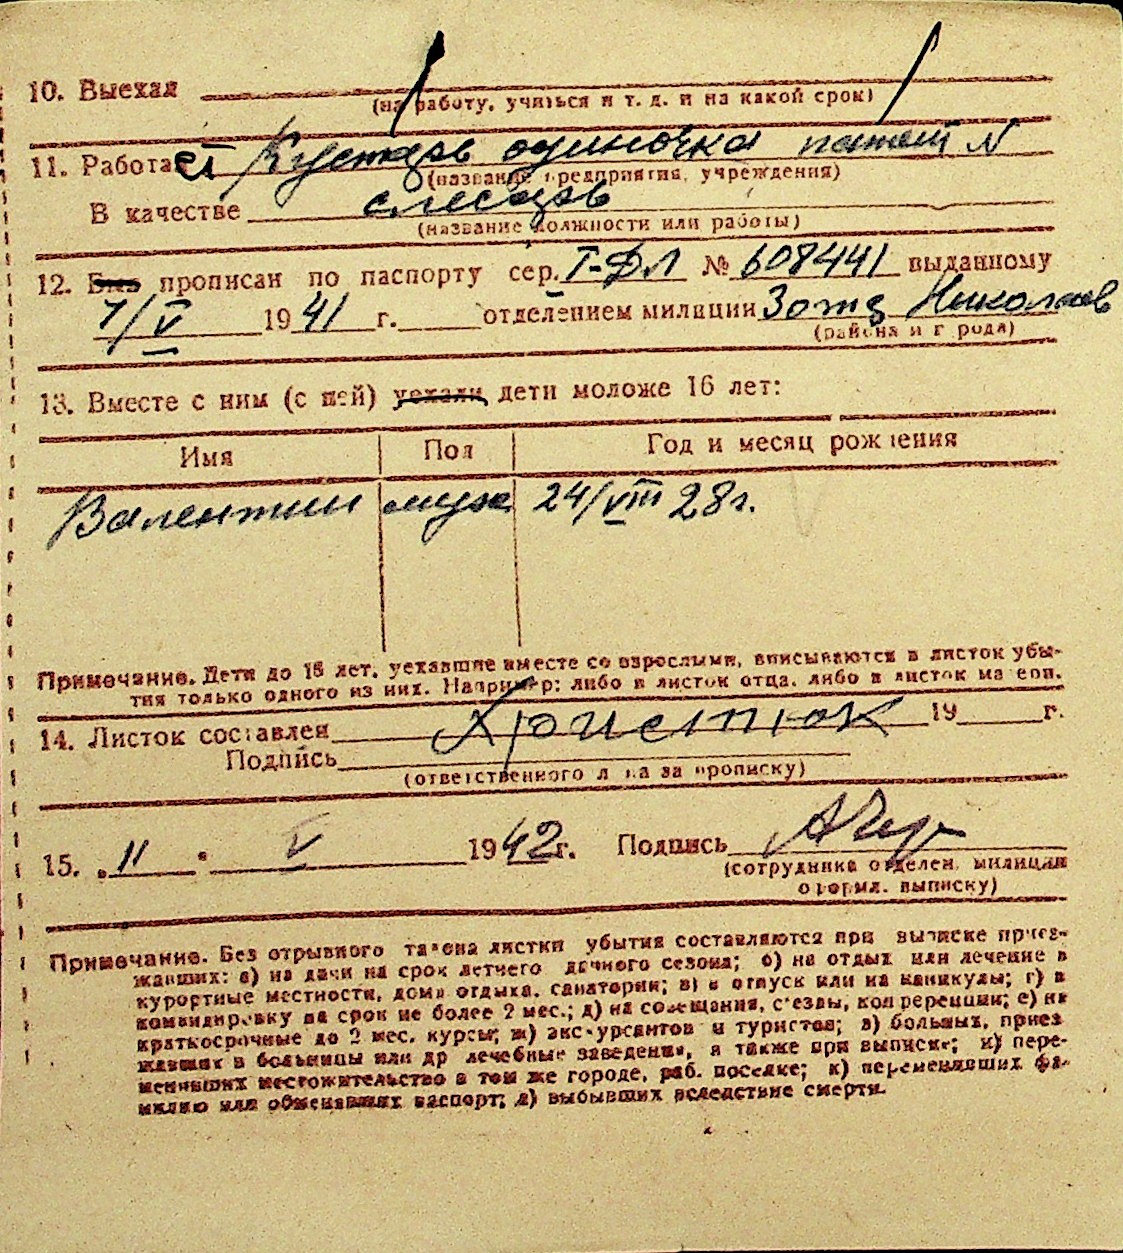 10. Выехал
(на работу, учиться и т. д. и на какой срок)
11. Работает Кустарь одиночка патент N
(название предприятия, учреждения)
В качестве слесарь
(название должности или работы)
12. Был прописан по паспорту сер. I-ДЛ № 608441 выданному
7/V 1941 г. отделением милиции Зотд Николаев
(района и города)
13. Вместе с ним (с ней) уехали дети моложе 16 лет:
Имя Пол Год и месяц рождения
Валентин муж 24/VIII 28г.
Примечание. Дети до 16 лет, уехавшие вместе со взрослыми, вписываются в листок убы-
тия только одного из них. Например: либо в листок отца, либо в листок матери.
14. Листок составлен Христюк 19 г.
Подпись
(ответственного лица за прописку)
15. „11" V 1942г. Подпись
(сотрудника отделен. милиции
оформл. выписку)
Примечание. Без отрывного талона листки убытия составляются при выписке приез-
жавших: а) на дачи на срок летнего дачного сезона; б) на отдых или лечение в
курортные местности, дома отдыха, санатории; в) в отпуск или на каникулы; г) в
командировку на срок не более 2 мес.; д) на совещания, с'езды, конференции; е) на
краткосрочные до 2 мес. курсы; ж) экскурсантов и туристов; з) больных, приез
жавших в больницы или др лечебные заведения, а также при выписке; и) пере-
менивших местожительство в том же городе, раб. поселке; к) переменивших фа-
милию или обменявших паспорт; л) выбывших вследствие смерти.